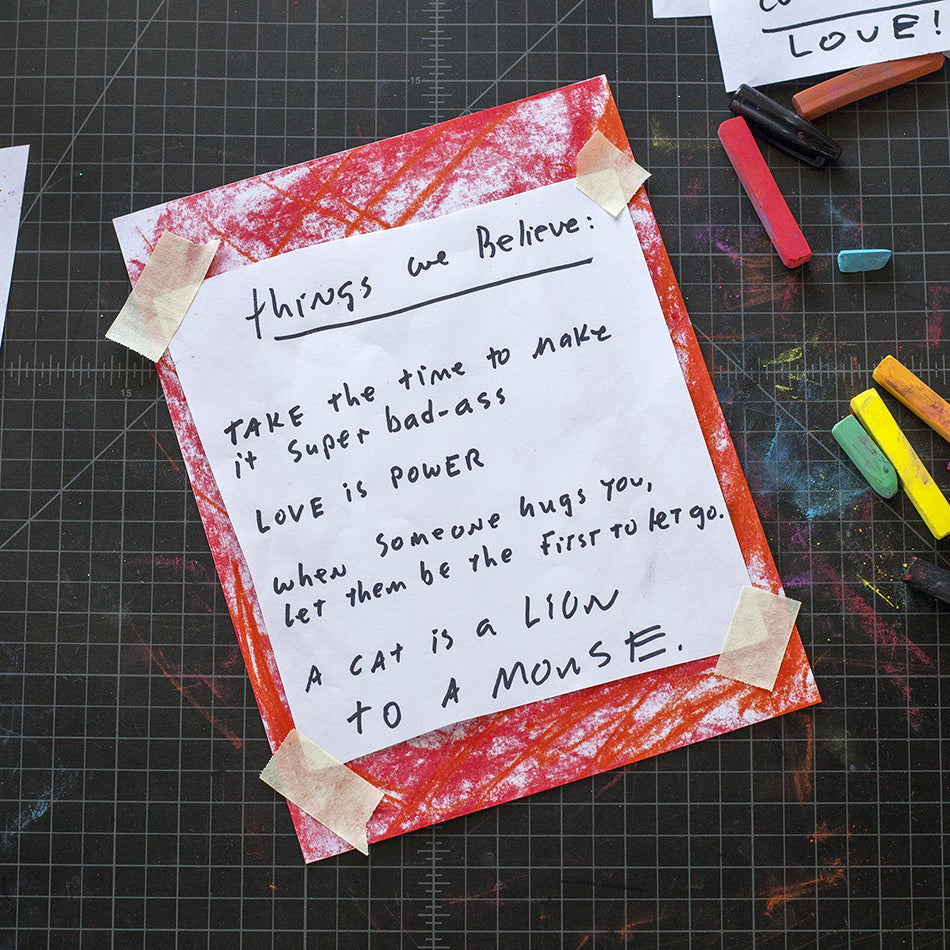 LOVE!
things we Believe:
TAKE the time to make
it super bad-ass
LOVE is POWER
when someone hugs you,
let them be the first to let go.
A CAt is a LION
to A MOUSE.
15
15